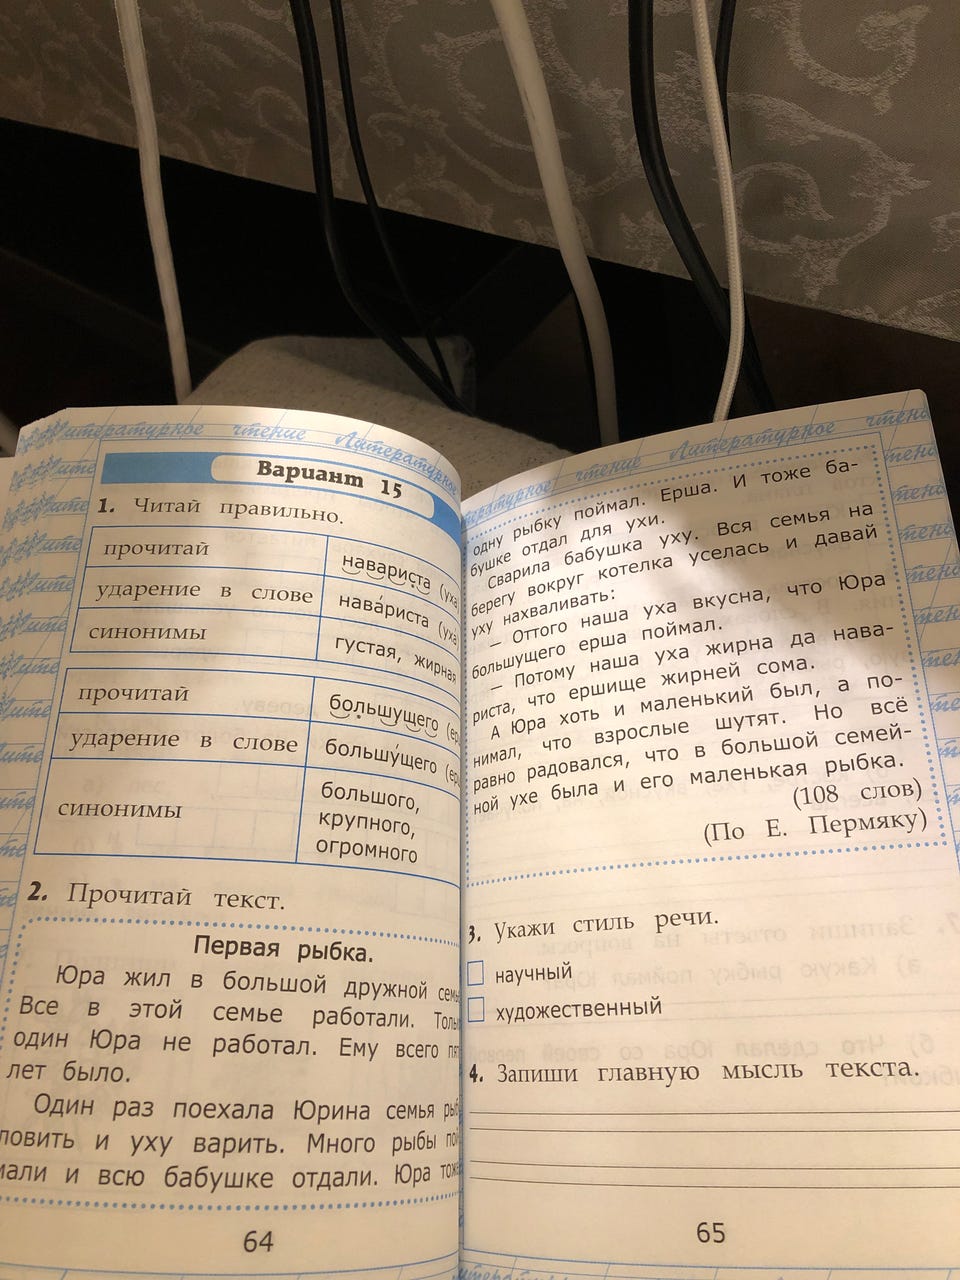 Литературное чтение Литературное
Вариант 15
1. Читай правильно.
прочитай навариста (уха)
ударение в слове нава́риста (уха)
синонимы густая, жирная
прочитай большущего (ер
ударение в слове большу́щего (ер
синонимы большого,
крупного,
огромного
2. Прочитай текст.
Первая рыбка.
Юра жил в большой дружной семь
Все в этой семье работали. Толь
один Юра не работал. Ему всего пя
лет было.
Один раз поехала Юрина семья рыб
ловить и уху варить. Много рыбы по
мали и всю бабушке отдали. Юра тож
64
Литературное чтение Литературное чтение
одну рыбку поймал. Ерша. И тоже ба-
бушке отдал для ухи.
Сварила бабушка уху. Вся семья на
берегу вокруг котелка уселась и давай
уху нахваливать:
— Оттого наша уха вкусна, что Юра
большущего ерша поймал.
— Потому наша уха жирна да нава-
риста, что ершище жирней сома.
А Юра хоть и маленький был, а по-
нимал, что взрослые шутят. Но всё
равно радовался, что в большой семей-
ной ухе была и его маленькая рыбка.
(108 слов)
(По Е. Пермяку)
3. Укажи стиль речи.
научный
художественный
4. Запиши главную мысль текста.
65